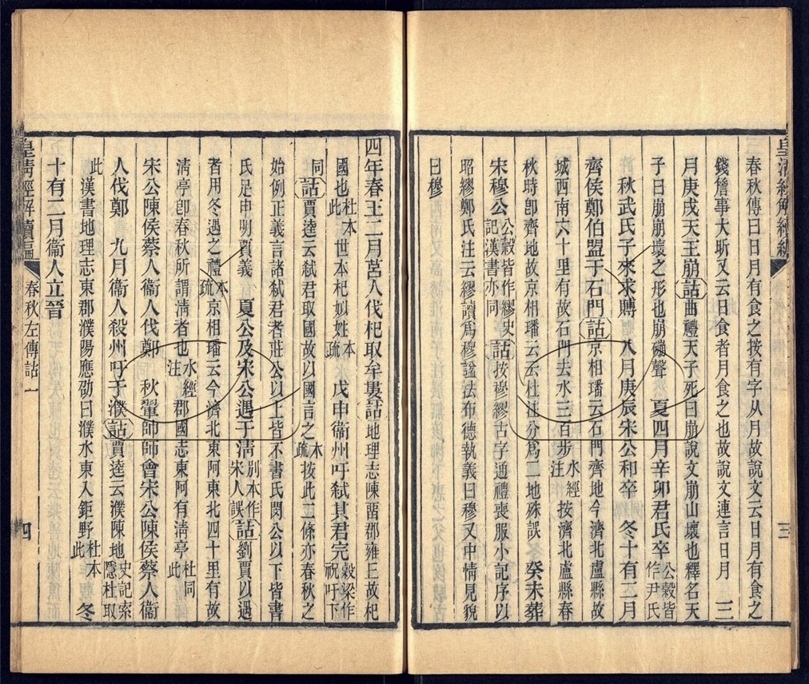 皇清經解續編
三
春秋傳曰日月有食之按有字从月故說文云日月有食之
錢詹事大昕又云日食者月食之也故說文連言日月 三
月庚戌天王崩詁曲禮天子死曰崩說文崩山壞也釋名天
子曰崩崩壞之形也崩硼聲 夏四月辛卯君氏卒公穀皆作尹氏
秋武氏子來求賻 八月庚辰宋公和卒 冬十有二月
齊侯鄭伯盟于石門詁京相璠云石門齊地今濟北盧縣故
城西南六十里有故石門去水三百步水經注按濟北盧縣春
秋時卽齊地故京相璠云云杜注分爲二地殊誤 癸未葬
宋穆公公穀皆作繆史記漢書亦同詁按穆繆古字通禮喪服小記序以
昭繆鄭氏注云繆讀爲穆諡法布德執義曰穆又中情見貌
曰穆
四年春王二月莒人伐杞取牟婁詁地理志陳畱郡雍丘故杞
國也杜本此世本杞姒姓本疏 戊申衞州吁弑其君完穀梁作祝吁下
同詁賈逵云弑君取國故以國言之本疏按此二條亦春秋之
始例正義言諸弑君者莊公以上皆不書氏閔公以下皆書
氏足申明賈義 夏公及宋公遇于淸別本作宋人誤詁劉賈以遇
者用冬遇之禮本疏京相璠云今濟北東阿東北四十里有故
淸亭卽春秋所謂淸者也水經注郡國志東阿有淸亭杜同此
宋公陳侯蔡人衞人伐鄭 秋翬帥師會宋公陳侯蔡人衞
人伐鄭 九月衞人殺州吁于濮詁賈逵云濮陳地史記索隱杜取
此漢書地理志東郡濮陽應劭曰濮水東入鉅野杜本此 冬
十有二月衞人立晉
皇淸經解續編
春秋左傳詁一
四